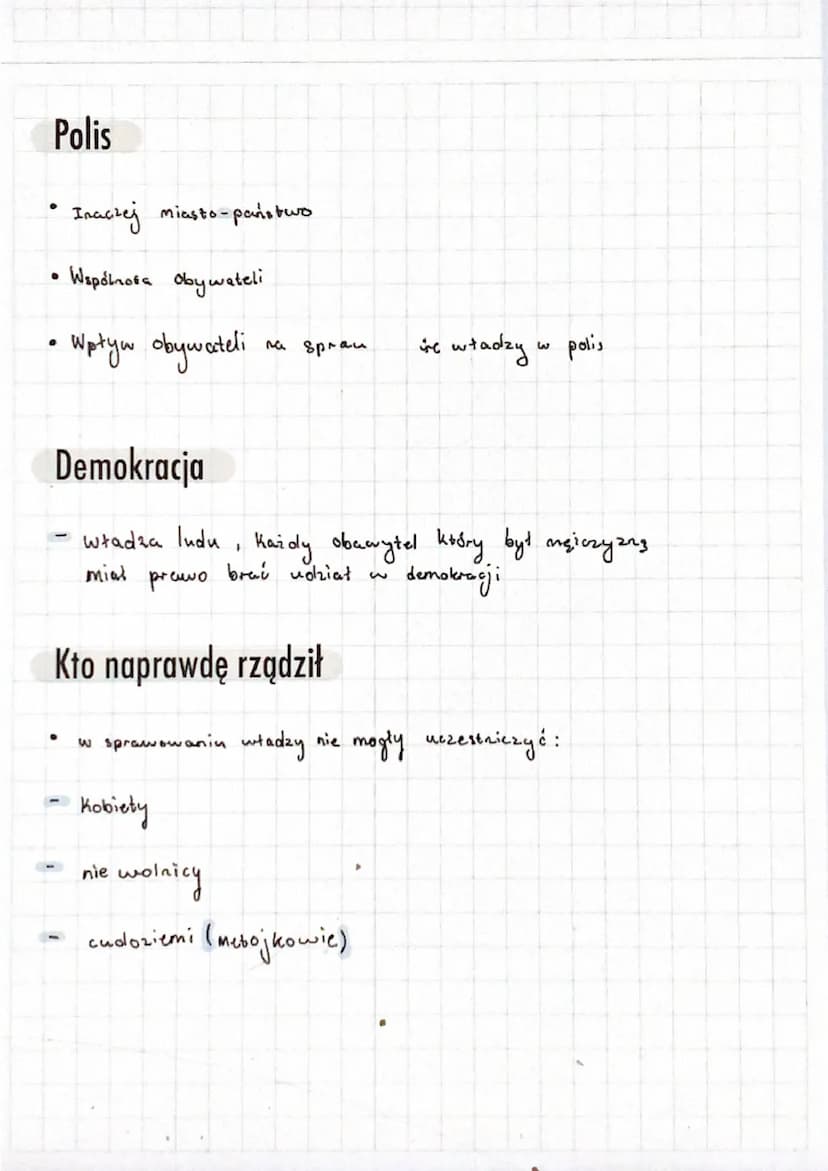 Polis
• Inaczej miasto-państwo
• Wspólnota obywateli
• Wpływ obywateli na spraw ie władzy w polis
Demokracja
- władza ludu, każdy obawytel który był mężczyzną
miał prawo brać udział w demokracji
Kto naprawdę rządził
• w sprawowaniu władzy nie mogły uczestniczyć:
- kobiety
- nie wolnicy
- cudoziemi (metojkowie)